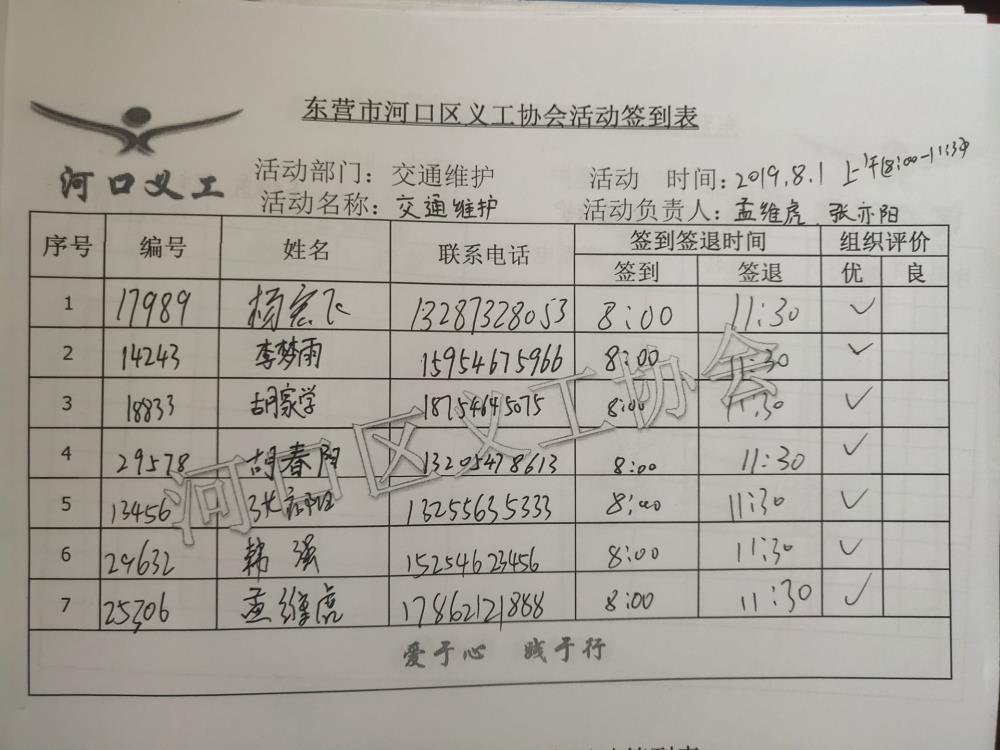 东营市河口区义工协会活动签到表
河口义工
活动部门：交通维护 活动 时间：2019.8.1 上午8:00-11:30
活动名称：交通维护 活动负责人：孟维虎 张亦阳
序号 编号 姓名 联系电话 签到签退时间 组织评价
签到 签退 优 良
1 17989 杨宏飞 13287328053 8:00 11:30 ✓
2 14243 李梦雨 15954675966 8:00 11:30 ✓
3 18833 胡家学 18754645075 8:00 11:30 ✓
4 29578 胡春阳 13205478613 8:00 11:30 ✓
5 13456 张 13255635333 8:00 11:30 ✓
6 29632 韩强 15254623456 8:00 11:30 ✓
7 25306 孟维虎 17862121888 8:00 11:30 ✓
河口区义工协会
爱于心 践于行